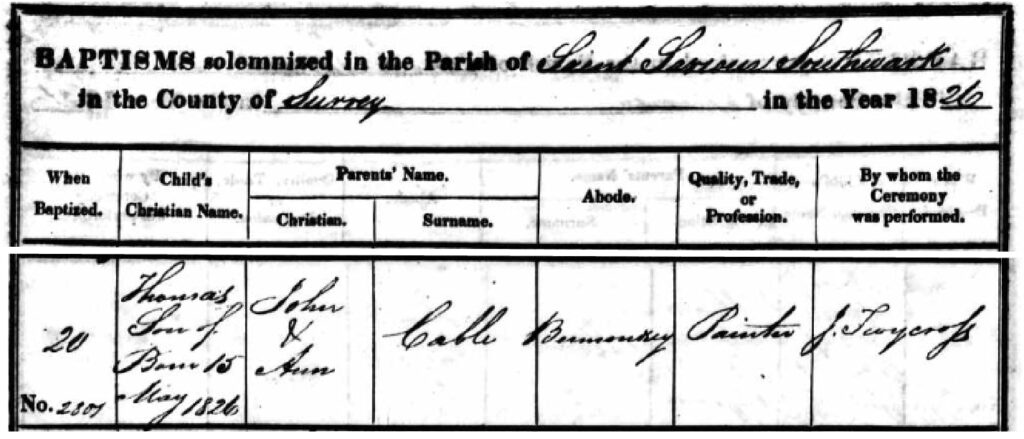 BAPTISMS solemnized in the Parish of Saint Saviour Southwark
in the County of Surrey in the Year 1826
When Baptized. Child's Christian Name. Parents' Name. Christian. Surname. Abode. Quality, Trade, or Profession. By whom the Ceremony was performed.
20
No. 2807
Thomas
Son of
Born 15
May 1826
John
&
Ann
Cable
Bermondsey
Painter
J. Twycross